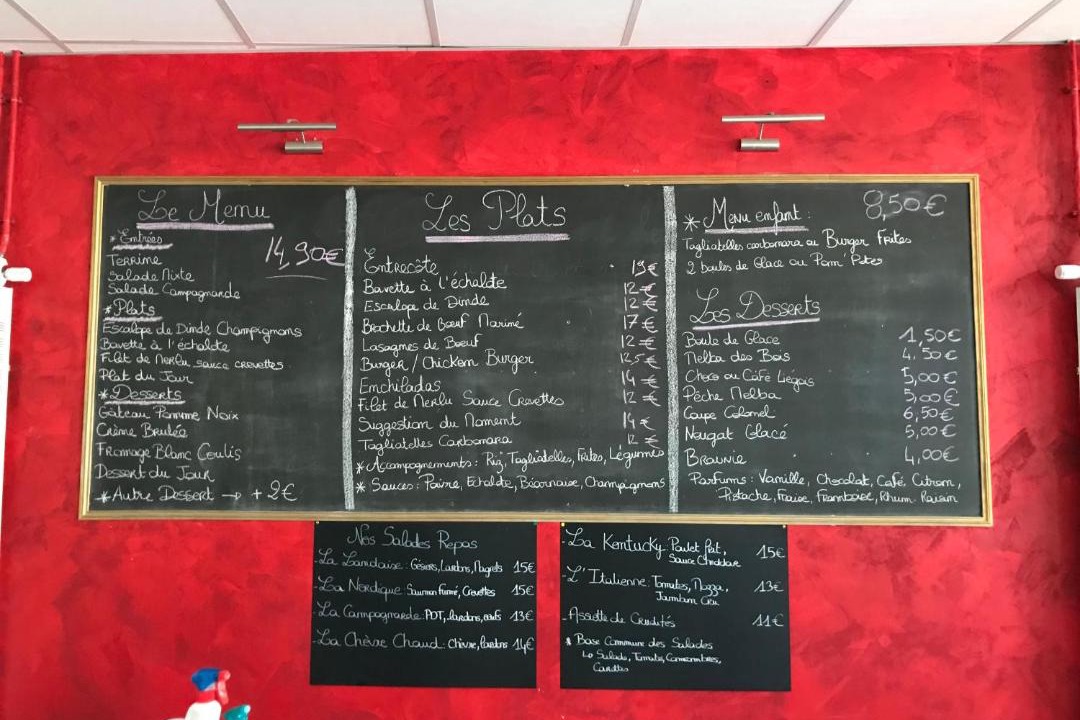 Le Menu
14,90€
* Entrées
Terrine
Salade Mixte
Salade Campagnarde
* Plats
Escalope de Dinde Champignons
Bavette à l'échalote
Filet de Merlu sauce crevettes
Plat du Jour
* Desserts
Gâteau Pomme Noix
Crème Brulée
Fromage Blanc Coulis
Dessert du Jour
* Autre Dessert → + 2€
Les Plats
Entrecôte 19€
Bavette à l'échalote 12€
Escalope de Dinde 12€
Brochette de Bœuf Mariné 17€
Lasagnes de Boeuf 12€
Burger / Chicken Burger 12,5€
Enchiladas 14€
Filet de Merlu Sauce Crevettes 12€
Suggestion du Moment 14€
Tagliatelles Carbonara 12€
* Accompagnements : Riz, Tagliatelles, Frites, Légumes
* Sauces : Poivre, Echalote, Béarnaise, Champignons
* Menu enfant : 8,50€
Tagliatelles carbonara ou Burger Frites
2 boules de Glace ou Pom' Potes
Les Desserts
Boule de Glace 1,50€
Melba des Bois 4.50€
Choco ou Café Liégois 5,00€
Pêche Melba 5,00€
Coupe Colonel 6,50€
Nougat Glacé 5,00€
Brownie 4,00€
Parfums : Vanille, Chocolat, Café, Citron,
Pistache, Fraise, Framboise, Rhum Raisin
Nos Salades Repas
- La Landaise : Gésiers, Lardons, Magrets 15€
- La Nordique : Saumon fumé, Crevettes 15€
- La Campagnarde : PDT, lardons, oeufs 13€
- La Chèvre Chaud : Chèvre, lardons 14€
- La Kentucky : Poulet frit, 15€
Sauce Cheddar
- L'Italienne : Tomates, Mozza, 13€
Jambon Cru
- Assiette de Crudités 11€
* Base Commune des Salades
La Salade, Tomate, Concombres,
Carottes